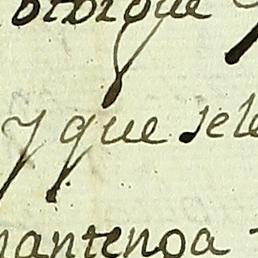 otorgue
y que se le
mantenga